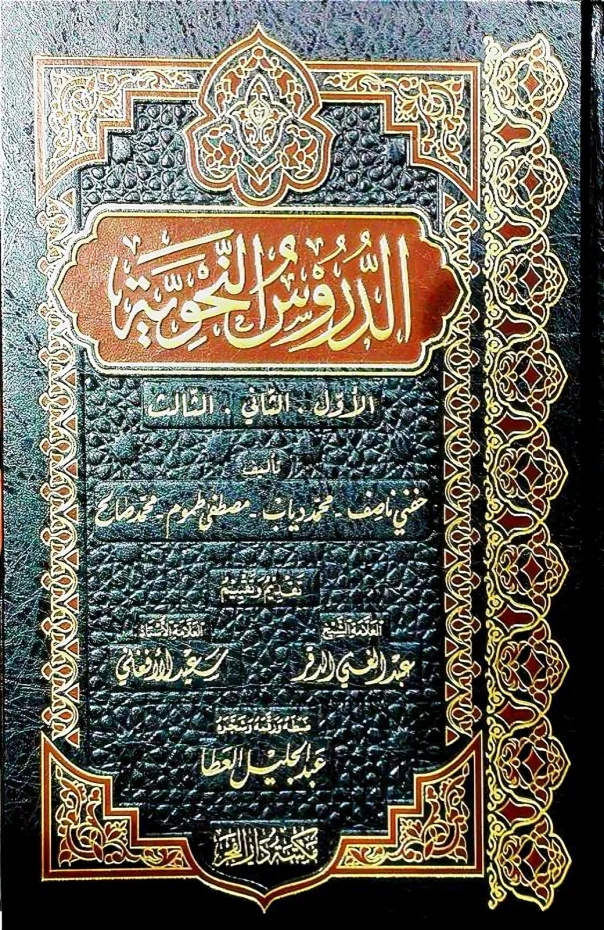 الدُّرُوسُ النَّحْوِيَّة
الأوّل . الثاني . الثالث
تأليف
حفني ناصف - محمد دياب - مصطفى طموم - محمد صالح
تقديم وتقييم
العلامة الشيخ العلامة الأستاذ
عبد الغني الدقر سعيد الأفغاني
ضبطه ورقمه وشجره
عبد الجليل العطا
مكتبة دار الفجر